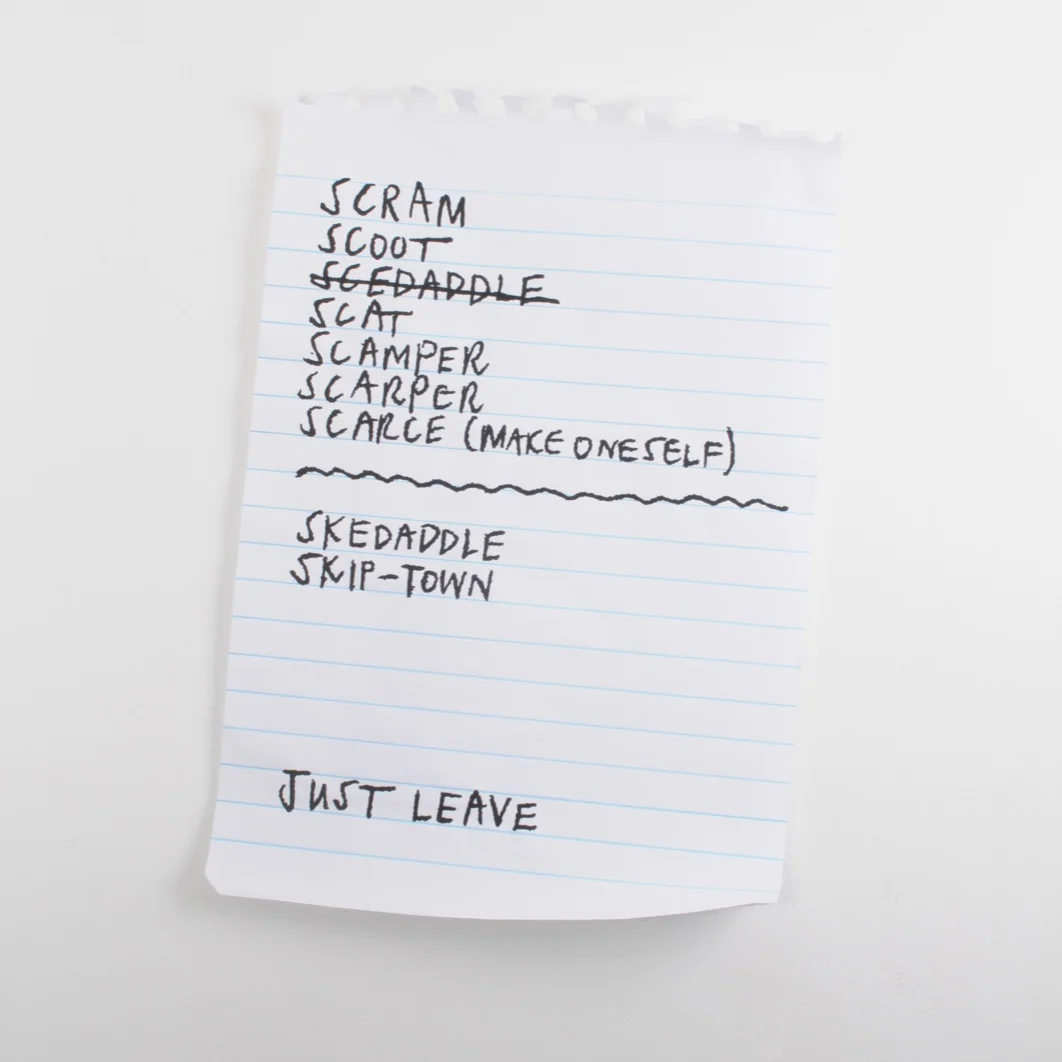 SCRAM
SCOOT
SCEDADDLE
SCAT
SCAMPER
SCARPER
SCARCE (MAKE ONESELF)
SKEDADDLE
SKIP-TOWN
JUST LEAVE